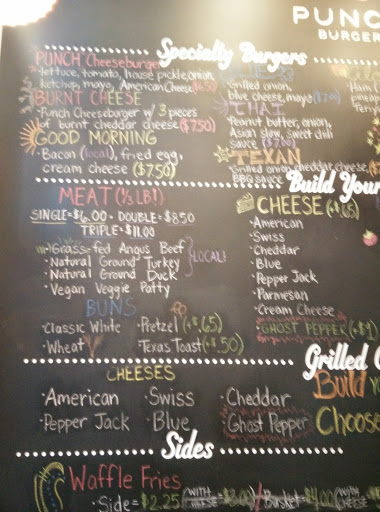 PUNC
BURGER
Specialty Burgers
PUNCH Cheeseburger
·lettuce, tomato, house pickle, onion,
ketchup, mayo, American Cheese ($6.50)
BURNT CHEESE
·Punch Cheeseburger w/ 3 pieces
of burnt cheddar cheese ($7.50)
GOOD MORNING
·Bacon (local), fried egg,
cream cheese ($7.50)
BLUES
·Grilled onion,
blue cheese, mayo ($7.00)
THAI
·Peanut butter, onion,
Asian slaw, sweet chili
sauce ($7.00)
TEXAN
·Grilled onion, cheddar cheese,
BBQ sauce
·Ham
pinea
Terry
Build Your
MEAT (1/3 LB!)
SINGLE=$6.00 · DOUBLE=$8.50
TRIPLE=$11.00
·Grass-fed Angus Beef
·Natural Ground Turkey
·Natural Ground Duck
LOCAL!
·Vegan Veggie Patty
BUNS
·Classic White
·Pretzel (+$.65)
·Wheat
·Texas Toast (+$.50)
CHEESE (+$.65)
·American
·Swiss
·Cheddar
·Blue
·Pepper Jack
·Parmesan
·Cream Cheese
·GHOST PEPPER (+$1)
Grilled C
CHEESES
·American
·Swiss
·Cheddar
·Pepper Jack
·Blue
·Ghost Pepper
Build
Choose
Sides
Waffle Fries
·Side=$2.25 (WITH CHEESE=$3.00) / Basket=$4.00 (WITH CHEESE